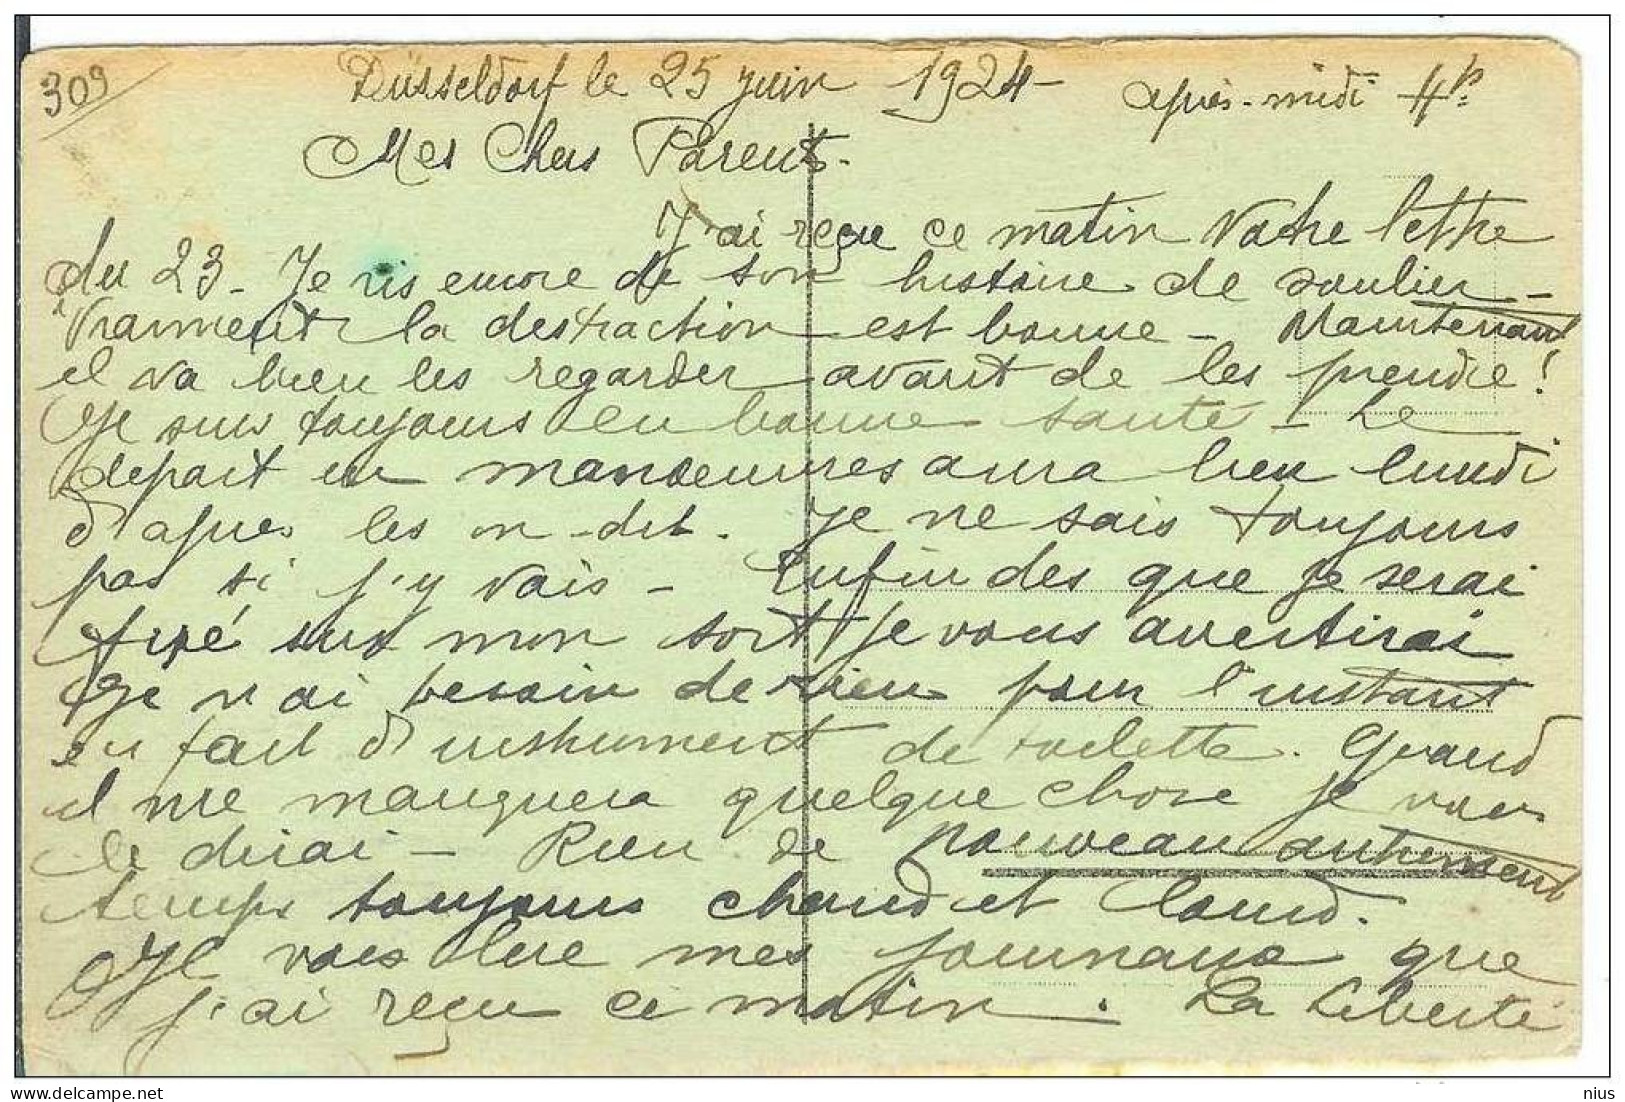 309
Düsseldorf le 25 juin 1924 - après-midi 4h
Mes Chers Parents.
J'ai reçu ce matin votre lettre
du 23 - Je ris encore de son histoire de soulier -
Vraiment la distraction est bonne - Maintenant
il va bien les regarder avant de les prendre !
Je suis toujours en bonne santé - Le
départ en manoeuvres aura lieu lundi
d'après les on-dit. Je ne sais toujours
pas si j'y vais - Enfin des que je serai
fixé sur mon sort je vous avertirai
Je n'ai besoin de rien pour l'instant
en fait d'instrument de toilette. Quand
il me manquera quelque chose je vous
le dirai - Rien de nouveau autrement
temps toujours chaud et lourd.
Je vais lire mes journaux que
j'ai reçu ce matin. La Liberté
nius